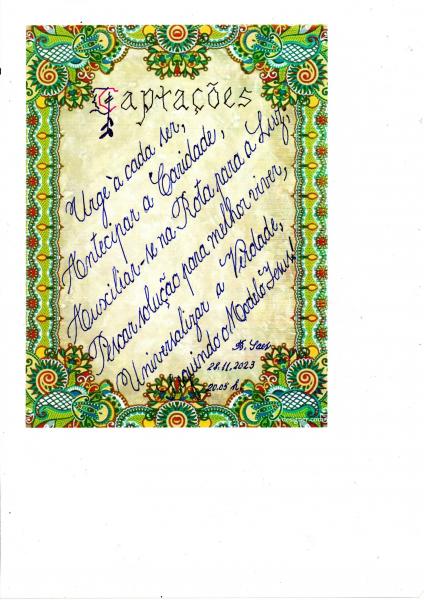 Captações
Urge à cada ser,
Antecipar a Caridade,
Auxiliar-se na Rota para a Luz,
Pescar solução para melhor viver,
Universalizar a Verdade,
Seguindo o Modelo Jesus!
28.11.2023
20.05 h
designer.com